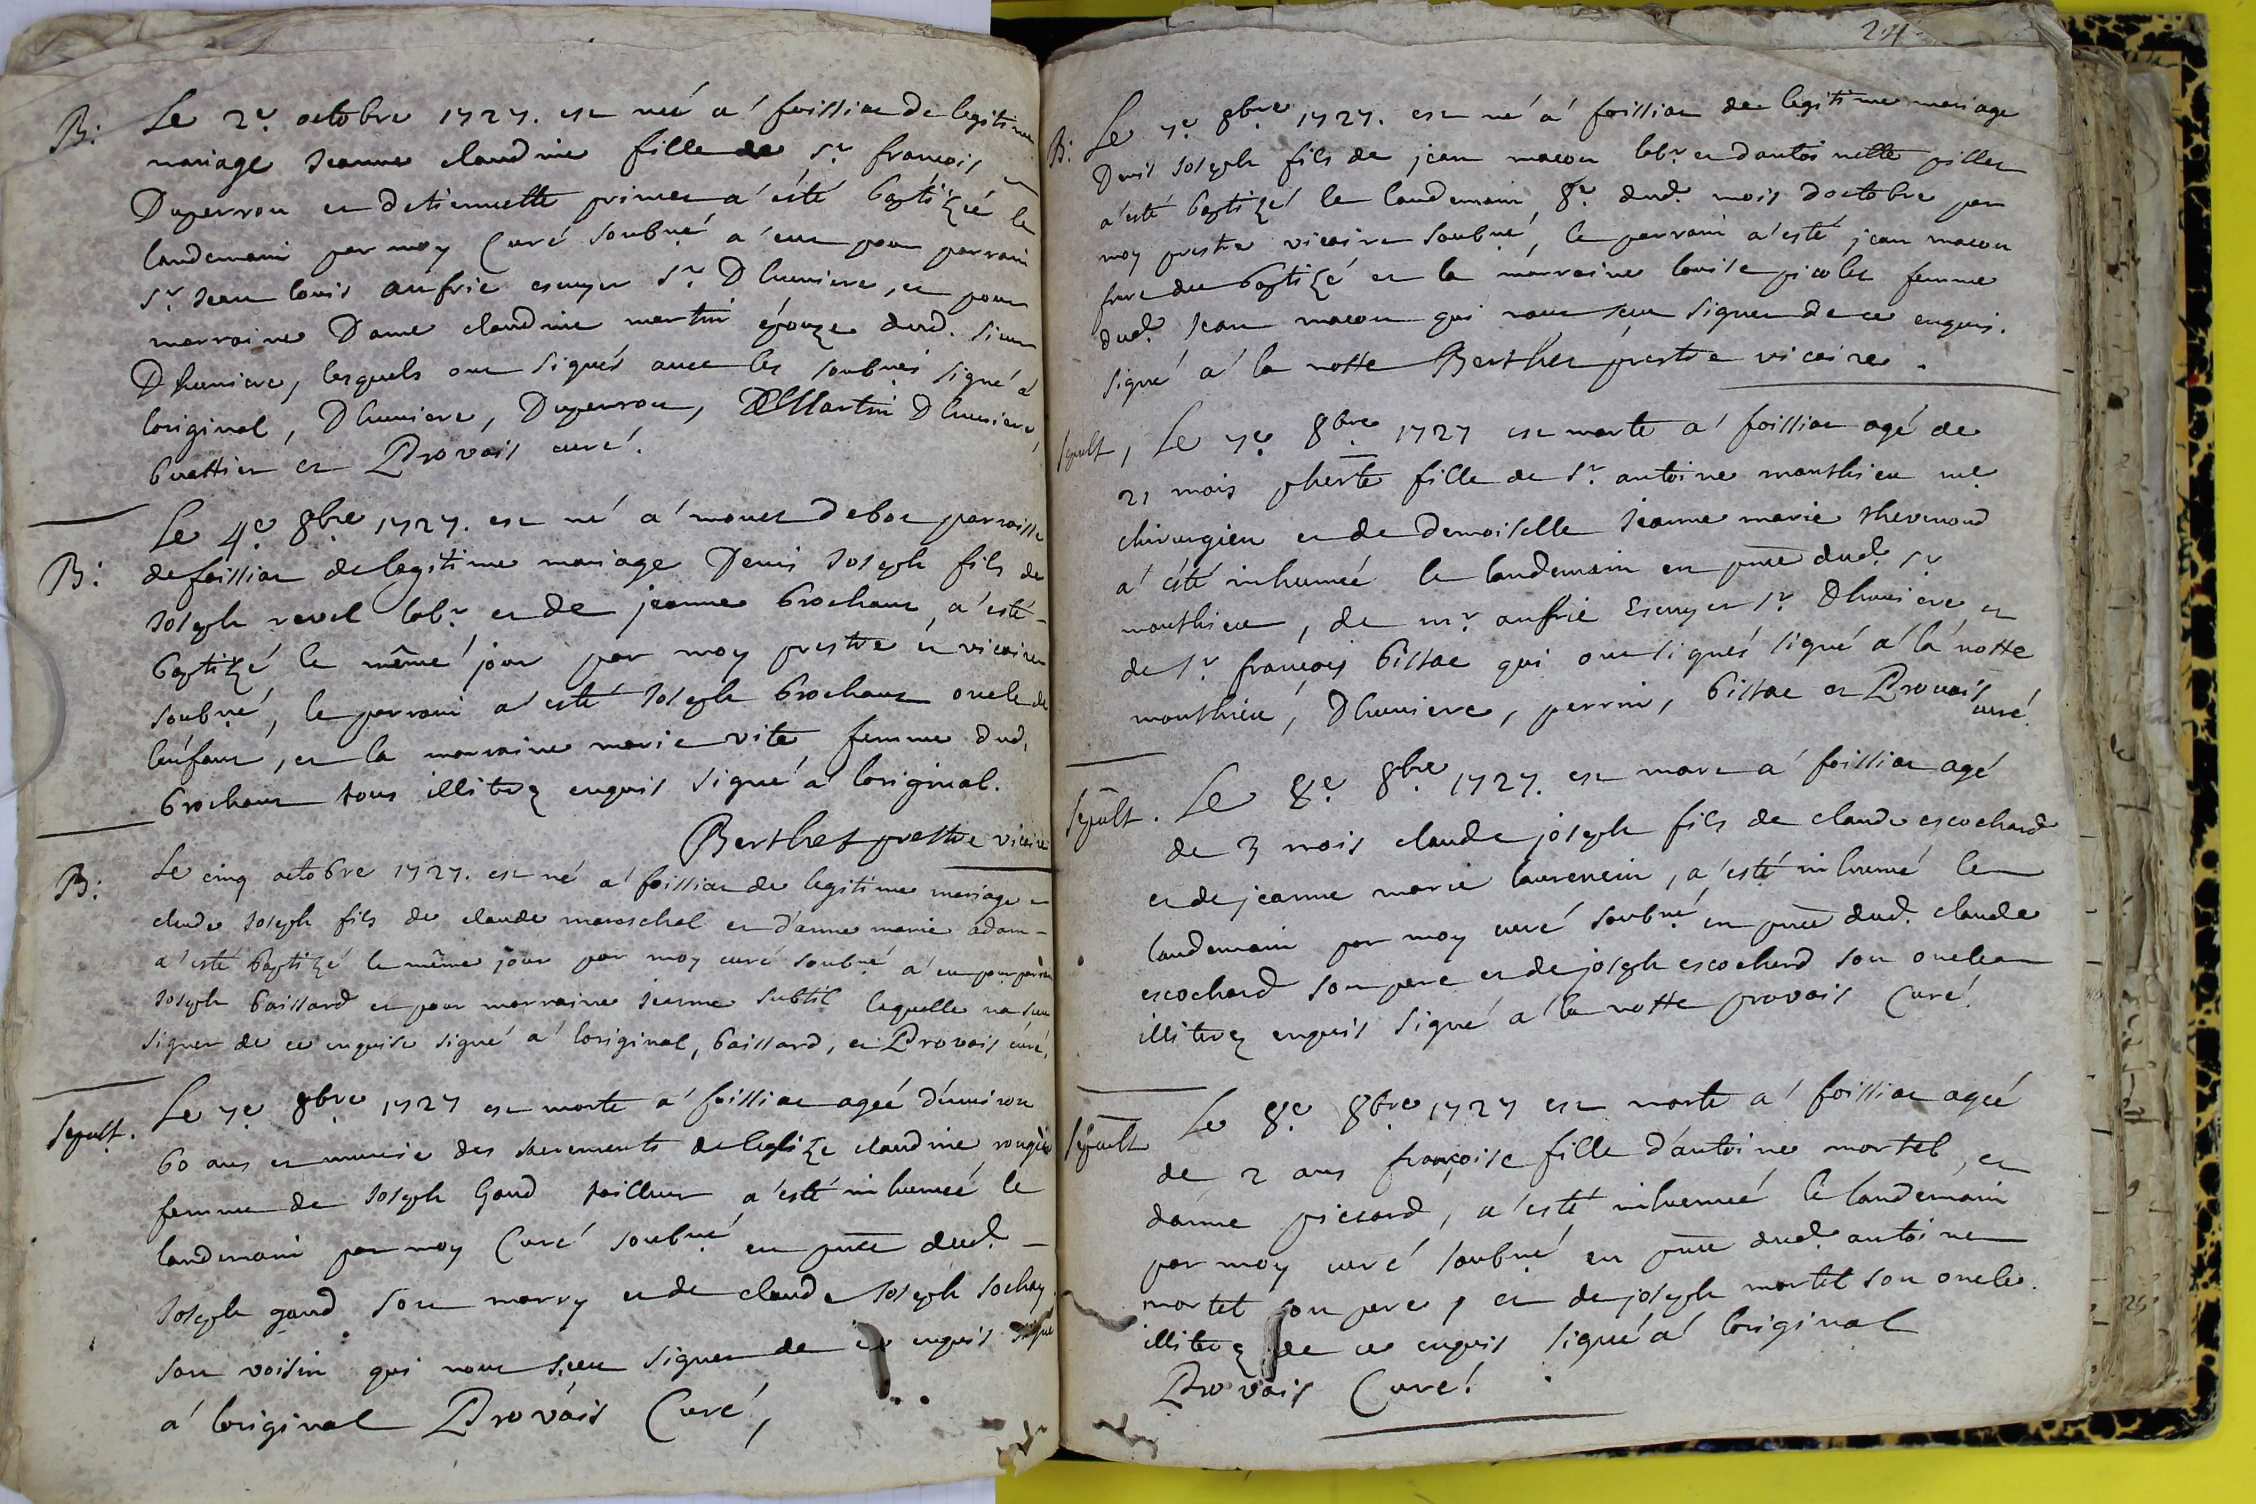 B:
Le 2e. octobre 1727. est née a' foissiat de legitime
mariage jeanne claudine fille de Sr. françois
Duperron et detiennette primet a' été baptizéé le
landemain par moy Curé soubné a' eut pour parrain
Sr. jean louis aufrie escuyer Sr. Dhuniere, et pour
marraine Dame claudine martin épouze dud. sieur
Dhuniere, lesquels ont signés avec les soubnés signé a'
loriginal, Dhuniere, Duperron, Martin Dhuniere,
et Provais curé.
B:
Le 4e. 8bre 1727. est né a' debost parroisse
de foissiat de legitime mariage Denis joseph fils de
joseph revel labr. et de jeanne brochant, a' esté
baptizé le même jour par moy prestre et vicaire
soubné, le parrain a' esté joseph brochant oncle de
lenfant, et la marraine marie vite femme dud.
brochant tous illitrez enquis signé a loriginal.
Berthet prestre vicaire
B:
Le cinq octobre 1727. est né a' foissiat de legitime mariage
claude joseph fils de claude mareschal et d'anne marie adam
a' esté baptizé le même jour par moy curé soubné a' eu pour parrain
joseph baissard et pour marraine jeanne subtil laquelle na sceu
signer de ce enquise signé a' loriginal, baissard, et Provais curé.
Sepult.
Le 7e. 8bre 1727 est morte a' foissiat agéé d'environ
60 ans et munie des sacrements de leglize claudine
femme de joseph Gaud tailleur a' esté inhuméé le
landemain par moy Curé soubné en pnce dud.
joseph gaud son marry et de claude joseph sochay
son voisin qui nont sceu signer de ce enquis signé
a' loriginal Provais Curé,
24
B:
Le 7e. 8bre 1727. est né a' foissiat de legitime mariage
Denis joseph fils de jean macon labr. et dantoinette pillet
a' esté baptizé le landemain 8e. dud. mois doctobre par
moy prestre vicaire soubné, le parrain a' esté jean macon
frere du baptizé et la marraine louise picolet femme
dud. jean macon qui nont sceu signer de ce enquis.
signé a' la notte Berthet prestre vicaire.
Sepult,
Le 7e. 8bre 1727 est morte a' foissiat agé de
21 mois pherte fille de Sr. antoine monthieu me
chirurgien et de demoiselle jeanne marie thevenond
a' été inhuméé le landemain en pnce dud. Sr.
monthieu, de mr. aufrie Escuyer Sr. Dhuniere et
de Sr. françois bissac qui ont signés signé a' la notte
monthieu, Dhuniere, perrin, bissac et Provais
curé
Sepult.
Le 8e. 8bre 1727. est mort a' foissiat agé
de 3 mois claude joseph fils de claude escochard
et de jeanne marie laurencin, a' esté inhumé le
landemain par moy curé soubné en pnce dud. claude
escochard son pere et de joseph escochard son oncle
illitrez enquis signé a' la notte provais Curé.
Sepult
Le 8e. 8bre 1727 est morte a' foissiat agéé
de 2 ans françoise fille d'antoine mortel, et
danne piccard, a' esté inhuméé le landemain
par moy curé soubné en pnce dud. antoine
mortel son pere, et de joseph mortel son oncle.
illitrez de ce enquis signé a' loriginal
Provais Curé.